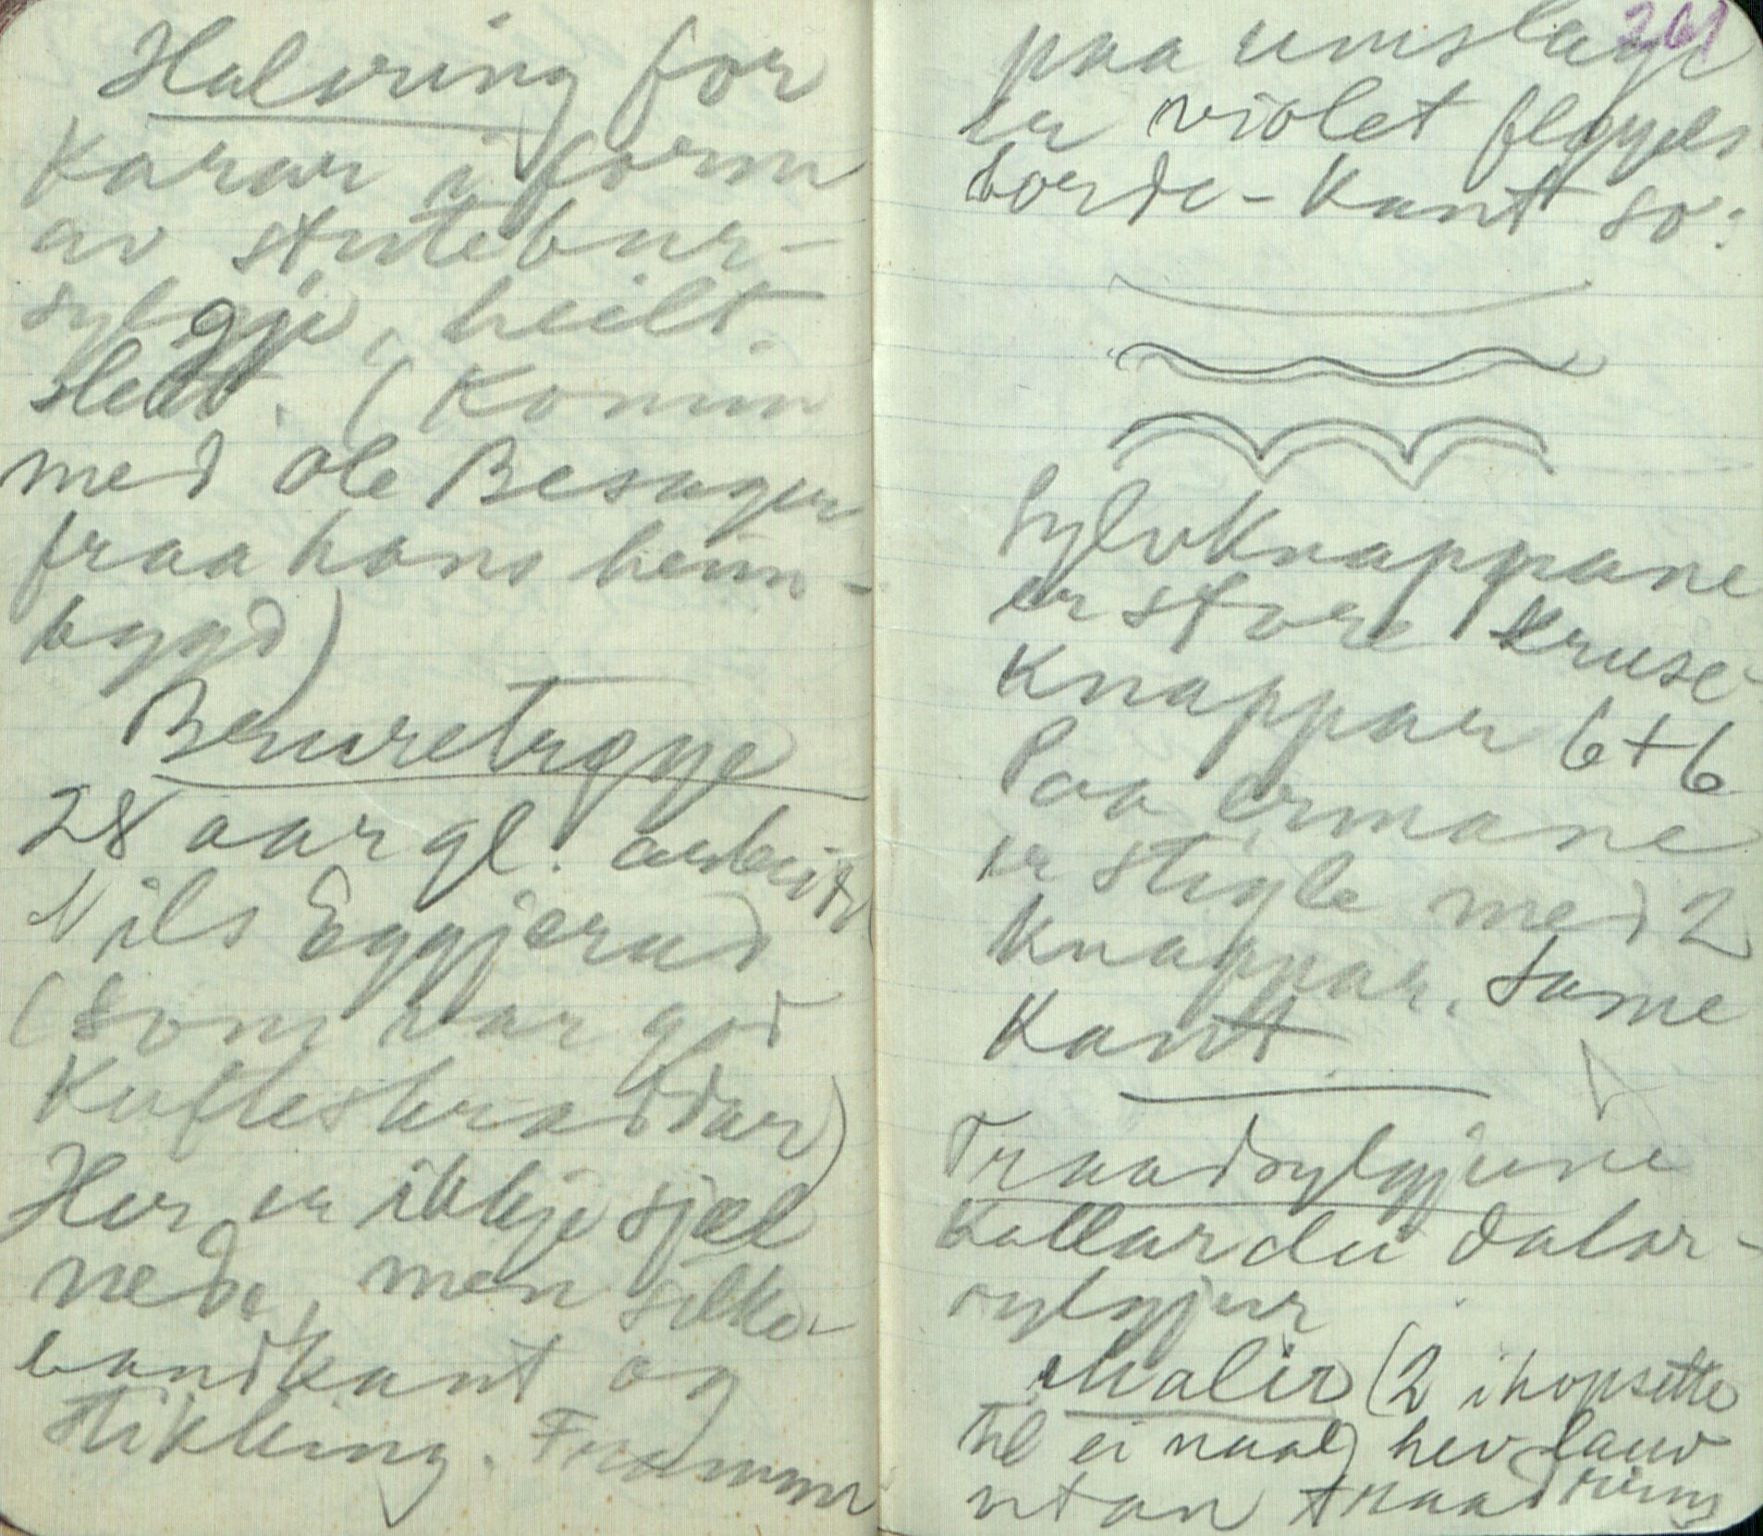 Halsring for
karar i form
av stutebur-
sylgje, heilt
slett. (Komin
med Ole Besager
fraa hans heim-
bygd)
Bruretrøye
28 aar gl. arbeidt
Nils Eggjerud
(som var god
kufteskraddar)
Her er ikkje sjæl
nede, men silke-
bandkant og
stikking. Framme
261
paa umslage
er violet fløyels
borde-kant so:
Sylvknappane
er store kruse-
knappar 6+6
Paa ermane
er stigle med 2
knappar. Same
kant.
Traadsylgjune
kallar dei dalar-
sylgjur
Malir (2 ihopsette
til ei naal) hev lauv
utan traadring